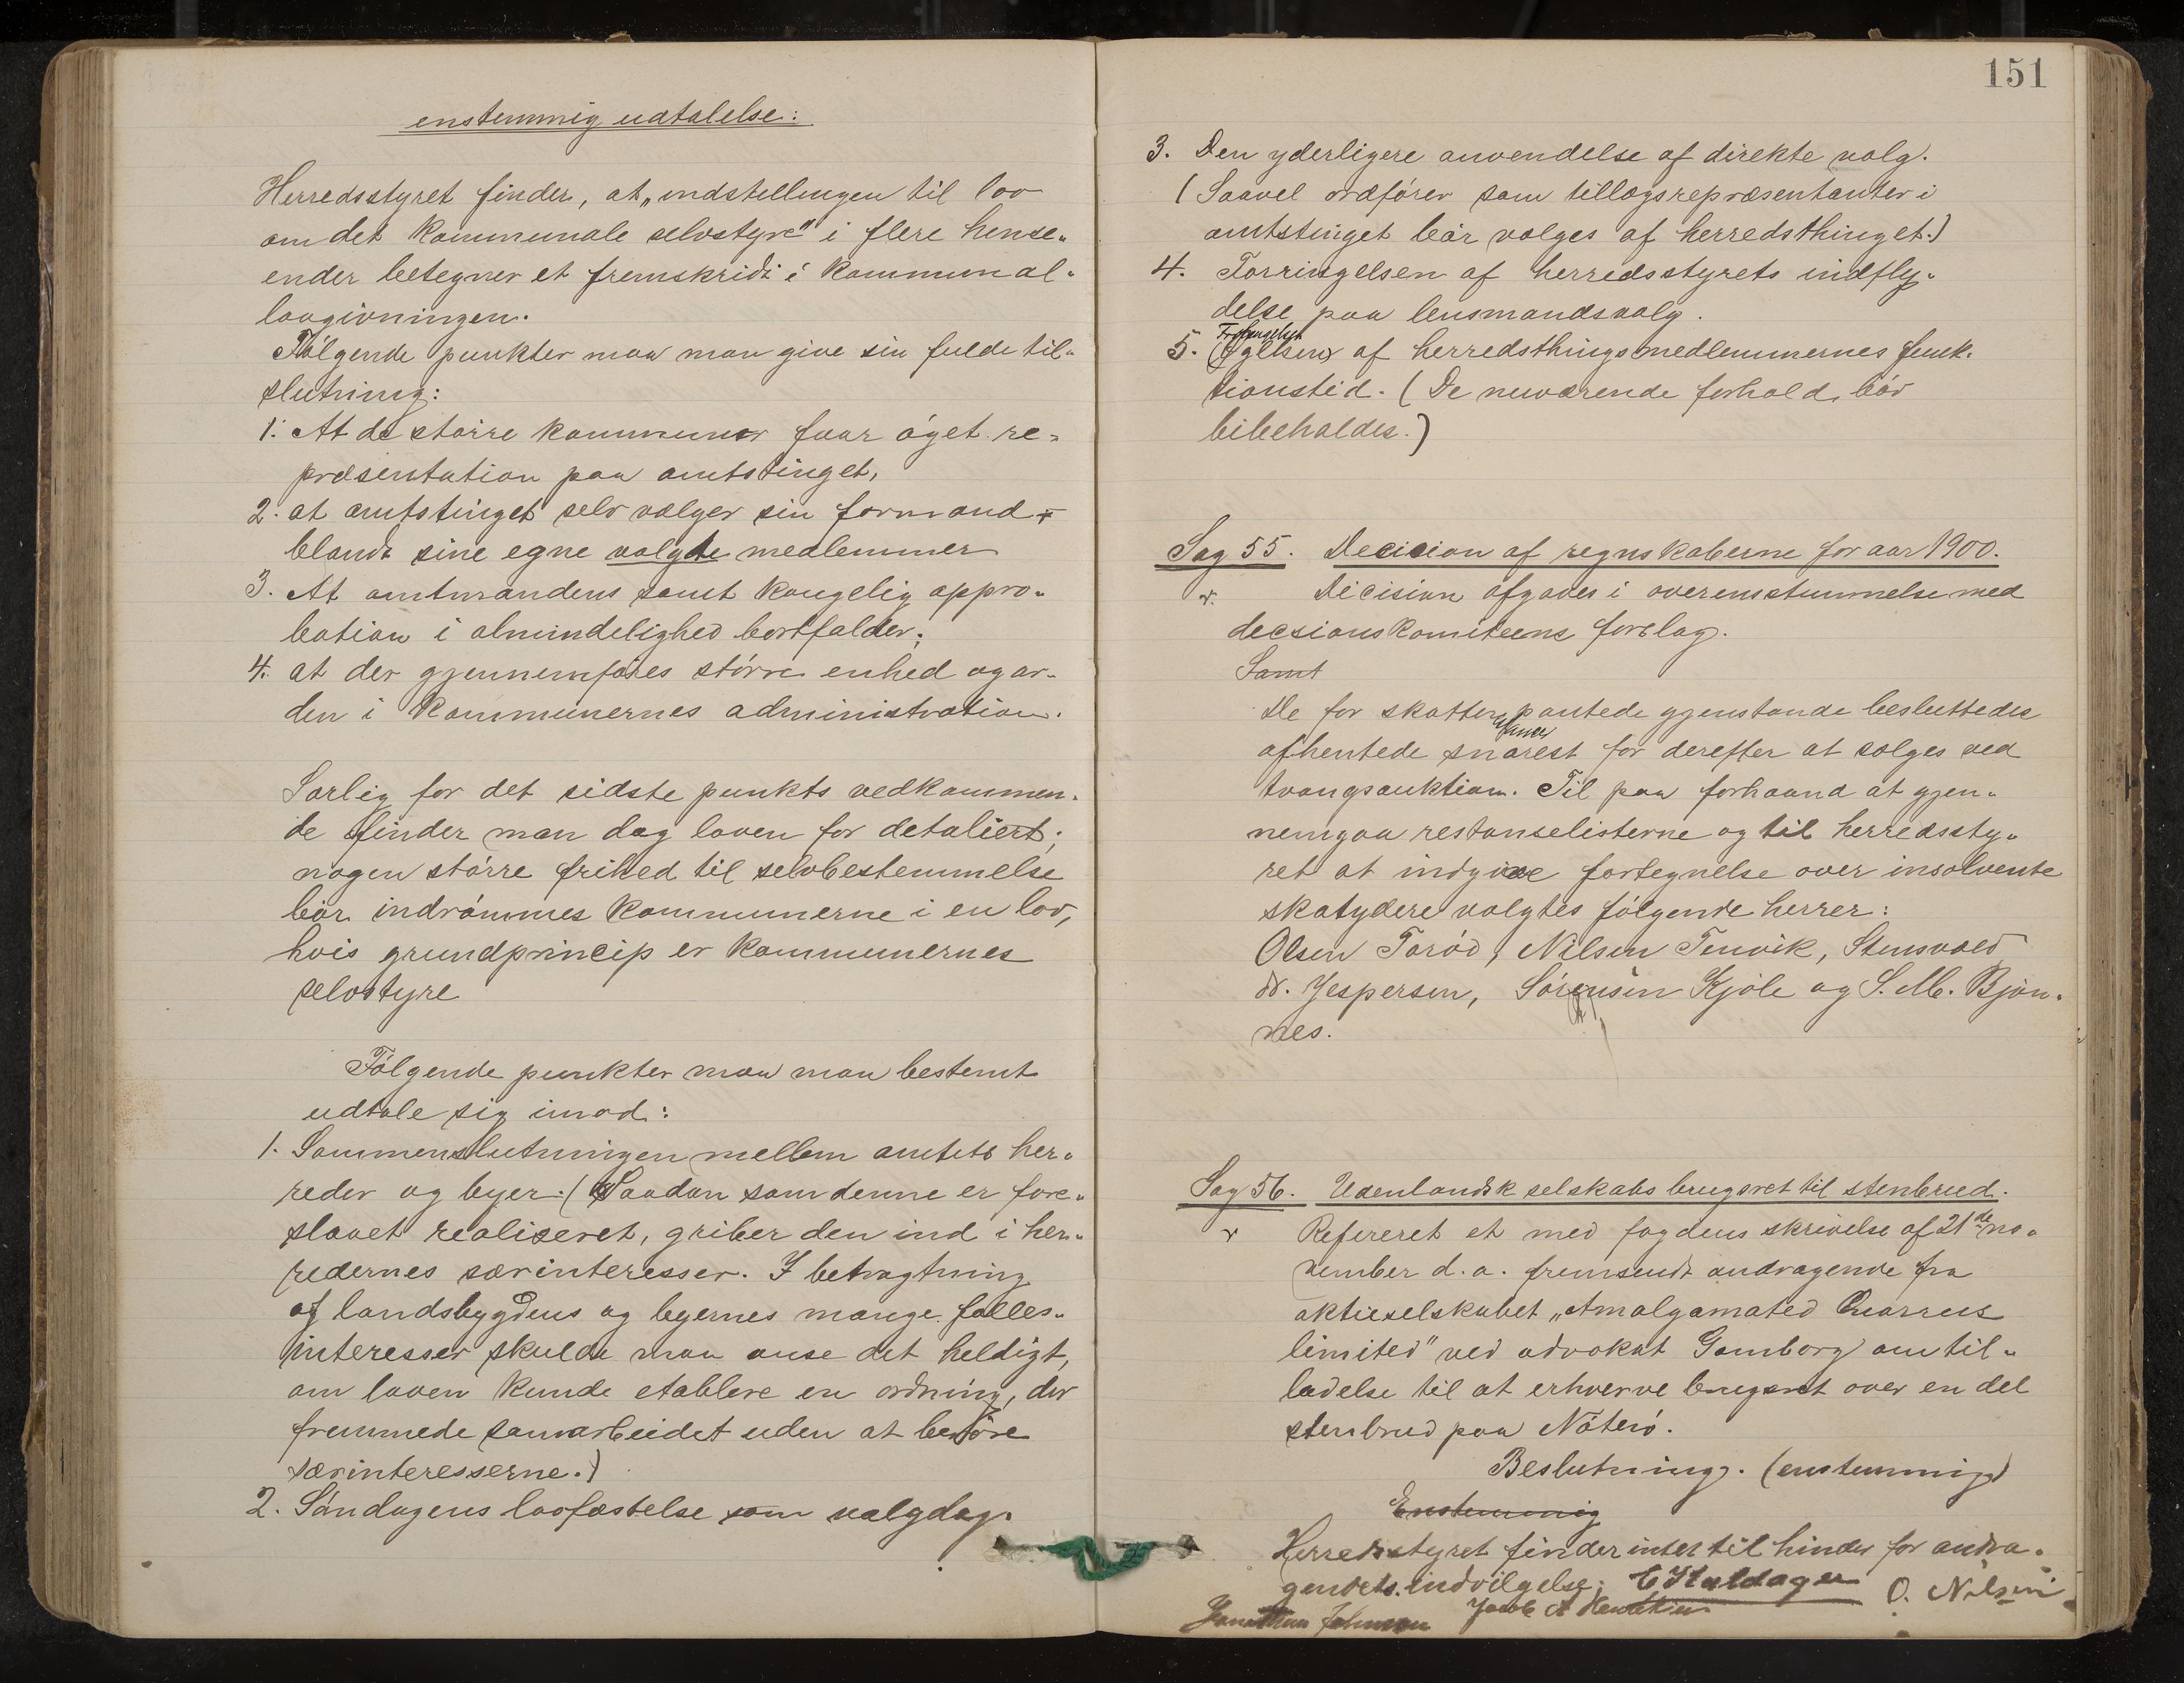 enstemmig udtalelse:
Herredsstyret finder, at „indstellingen til lov
om det kommunale selvstyre" i flere hense-
ender betegner et fremskridt i kommunal-
lovgivningen.
Følgende punkter maa man give sin fulde til-
slutning:
1. At de større kommuner faar øget re-
præsentation paa amtstinget,
2. at amtstinget selv vælger sin formand
blandt sine egne valgte medlemmer
3. At amtmandens samt kongelig appro-
bation i almindelighed bortfalder;
4. at der gjennemføres større enhed og or-
den i kommunernes administration.
Særlig for det sidste punkts vedkommen-
de finder man dog loven for detaliert;
nogen større frihed til selvbestemmelse
bør indrømmes kommunerne i en lov,
hvis grundprincip er kommunernes
selvstyre
Følgende punkter maa man bestemt
udtale sig imod:
1. Sammenslutningen mellem amtets her-
reder og byer. (Saadan som denne er fore-
slaaet realiseret, griber den ind i her-
redernes særinteresser. I betragtning
af landsbygdens og byernes mange fælles-
interesser skulde man anse det heldigt,
om loven kunde etablere en ordning, der
fremmede samarbeidet uden at berøre
særinteresserne.)
2. Søndagens lovfæstelse som valgdag.
151
3. Den yderligere anvendelse af direkte valg.
(Saavel ordfører som tillægsrepræsentanter i
amtstinget bør vælges af herredsthinget.)
4. Forringelsen af herredsstyrets indfly-
delse paa lensmandsvalg.
5. (Øgelsen) af herredsthingsmedlemmernes funk-
tionstid. (De nuværende forhold bør
bibeholdes.)
Sag 55. Decision af regnskaberne for aar 1900.
Dicision afgaves i overensstemmelse med
decsionskomiteens forslag.
Samt
De for skatter pantede gjenstande besluttedes
afhentede snarest for derefter at sælges ved
tvangsauktion. Til paa forhaand at gjen-
nemgaa restanselisterne og til herredssty-
ret at indgive fortegnelse over insolvente
skatydere valgtes følgende herrer:
Olsen Torød, Nilsen Tenvik, Stensvold
dr. Jespersen, Sørensen Kjøle og S. M. Bjøn-
nes.
Sag 56. Udenlandsk selskabs brugsret til stenbrud.
Refereret et med fogdens skrivelse af 21de no-
vember d. a. fremsendt andragende fra
aktieselskabet „Amalgamated Quarries
limited" ved advokat Gamborg om til-
ladelse til at erhverve brugsret over en del
stenbrud paa Nøterø.
Beslutning. (enstemmig)
Enstemmig
Herredsstyret finder intet til hinder for andra-
gendets indvilgelse; O. Nilsen